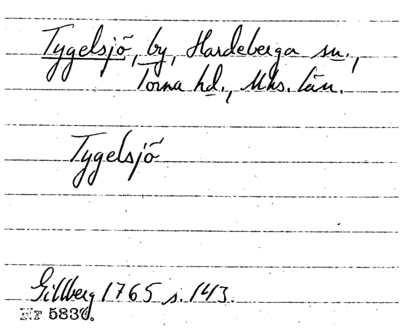 Tygelsjö, by, Hardeberga sn.,
Torna hd., Mhs. län.
Tygelsjö
Gillberg 1765 s. 143.
Nr 5836.